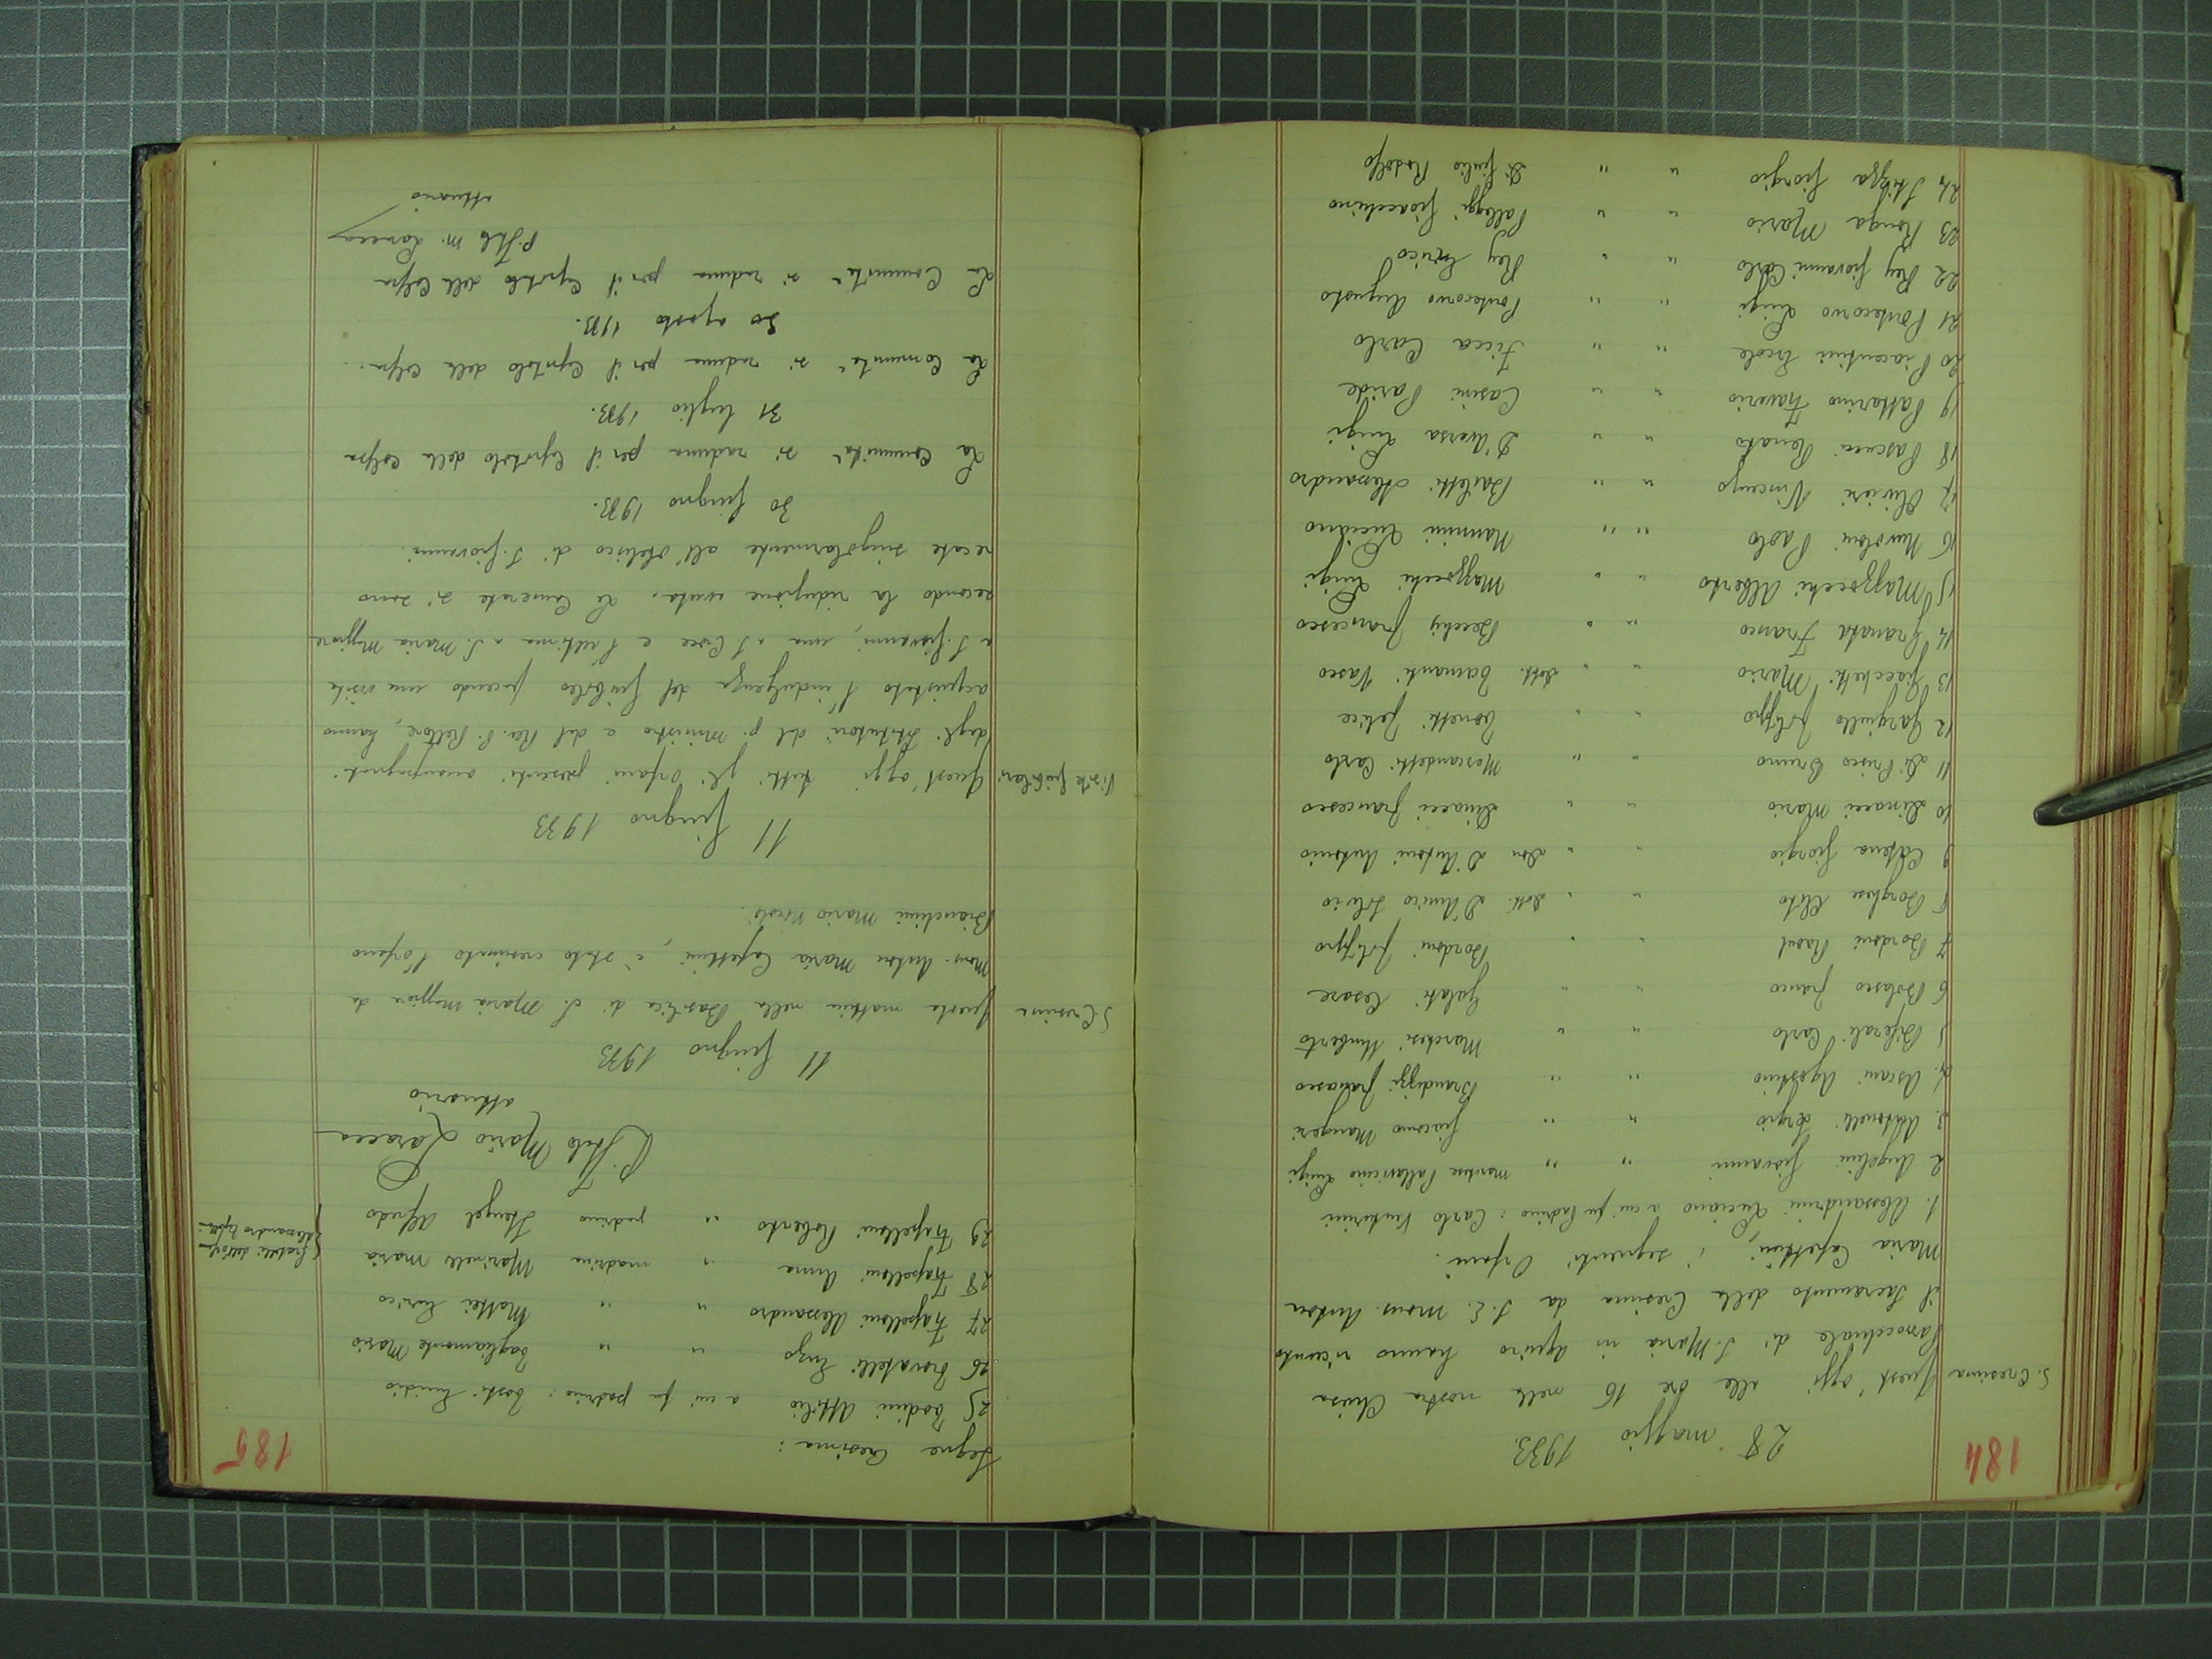 184
28 maggio 1933.
S. Cresima Quest'oggi alle ore 16 nella nostra Chiesa
Parrocchiale di S. Maria in Aquiro hanno ricevuto
il Sacramento della Cresima da S. E. Mons. Anton
Maria Capettini, i seguenti Orfani.
1. Alessandrini Luciano a cui fu Padrino: Carlo Venturini
2 Angelini Giovanni " " marchese Pallavicino Luigi
3. Antonelli Sergio " " Giacomo Mangeri
4. Ascani Agostino " " Brandizzi Francesco
5 Biferali Carlo " " Marchesi Umberto
6 Bolasco Franco " " Galati Cesare
7 Bordoni Raoul " " Bordoni Filippo
8 Borghese Cleto " " dott. D'Amico Silvio
9 Catena Giorgio " " Don D'Antoni Antonio
10 Dinacci Mario " " Dinacci Francesco
11 Di Prisco Bruno " " Moscardetti Carlo
12 Gargiullo Filippo " " Bonetti Felice
13 Giacchetti Mario " " dott. Damanti Vasco
14 Granata Franco " " Becchis Francesco
15 Mazzocchi Alberto " " Mazzocchi Luigi
16 Nuvoloni Paolo " " Nannini Luciano
17 Olivieri Vincenzo " " Bailetti Alessandro
18 Pascucci Renato " " D'Aversa Luigi
19 Pattarino Saverio " " Casini Paride
20 Piacentini Ercole " " Ficca Carlo
21 Pontecorvo Luigi " " Pontecorvo Augusto
22 Rey Giovanni Carlo " " Rey Enrico
23 Ronga Mario " " Palleggi Gioacchino
24 Stizza Giorgio " " Di Giulio Rodolfo
185
Segue Cresima:
25 Todini Attilio a cui fu padrino: Tosti Emidio
26 Trovatelli Enzo " " Tagliamonte Mario
27 Trapelloni Alessandro " " Mattei Enrico
28 Trapelloni Anna " madrina Marinelli Maria
29 Trapelloni Roberto " padrino Stengel Alfredo
fratelli dell'orf.
Alessandro
P. Italo Mario Laracca
attuario
11 Giugno 1933
S. Cresima Questa mattina nella Basilica di S. Maria Maggiore da
Mons. Anton Maria Capettini, è stato cresimato l'orfano
Bianchini Mario Nicolò.
11 Giugno 1933
Visite giubilari Quest'oggi tutti gli Orfani presenti accompagnati
dagli Istitutori dal p. Ministro e dal Rev. P. Rettore, hanno
acquistato l'indulgenza del Giubileo facendo una visita
a S. Giovanni, una a S. Croce e l'ultima a S. Maria Maggiore
secondo la riduzione avuta. Le Camerate si sono
recate singolarmente all'obelisco di S. Giovanni.
30 Giugno 1933.
La Comunità si raduna per il Capitolo delle Colpe
31 luglio 1933.
La Comunità si raduna per il Capitolo delle Colpe.
30 agosto 1933.
La Comunità si raduna per il Capitolo delle Colpe
P. Italo M. Laracca
attuario